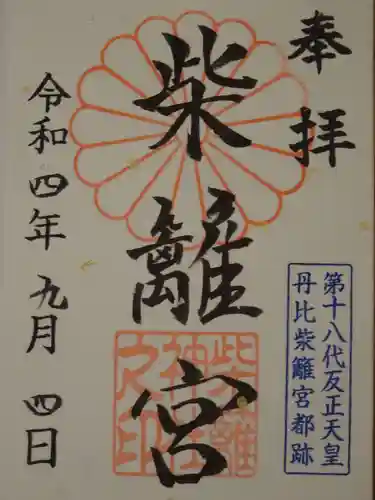 奉拝
第十八代反正天皇
丹比柴籬宮都跡
柴籬宮
柴籬
神社
之印
令和四年九月四日